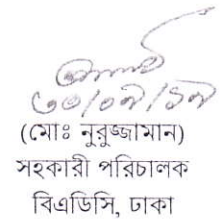 ৩০/০৭/১৭
(মোঃ নুরুজ্জামান)
সহকারী পরিচালক
বিএডিসি, ঢাকা